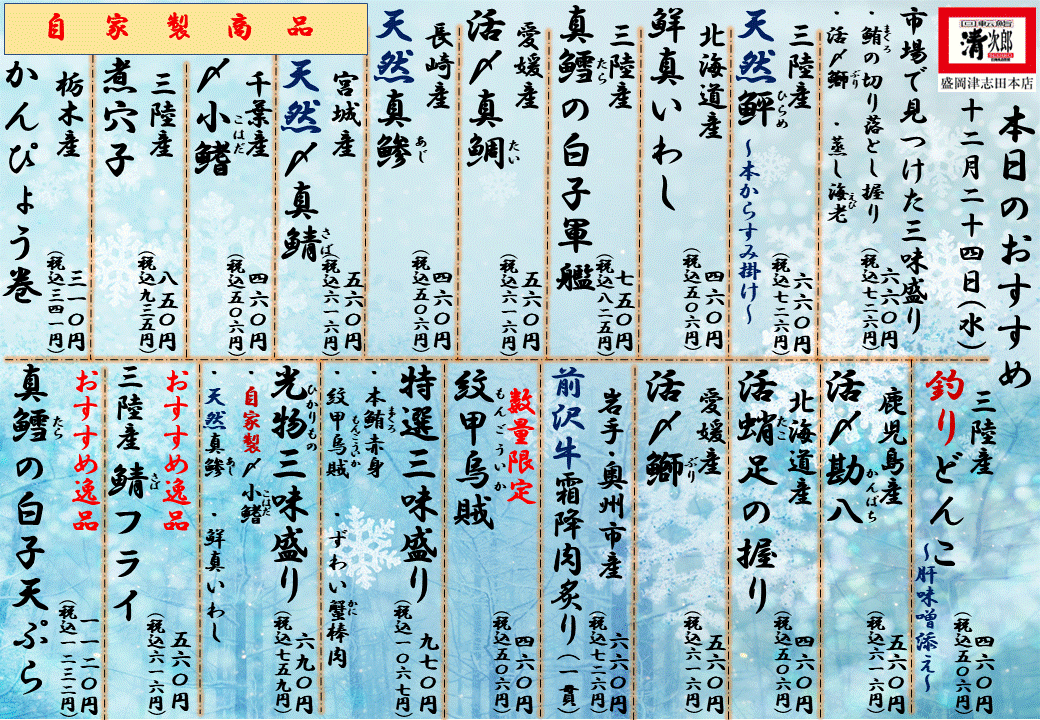 回転鮨
清次郎
盛岡津志田本店
本日のおすすめ
十二月二十四日(水)
市場で見つけた三味盛り
・鮪の切り落とし握り
まぐろ
・活〆鰤 ・蒸し海老
ぶり
えび
六六〇円
(税込七二六円)
三陸産
天然鮃
ひらめ
~本からすみ掛け~
六六〇円
(税込七二六円)
北海道産
鮮真いわし
四六〇円
(税込五〇六円)
三陸産
真鱈の白子軍艦
たら
七五〇円
(税込八二五円)
愛媛産
活〆真鯛
たい
五六〇円
(税込六一六円)
長崎産
天然真鯵
あじ
四六〇円
(税込五〇六円)
自家製商品
宮城産
天然〆真鯖
さば
五六〇円
(税込六一六円)
千葉産
〆小鰭
こはだ
四六〇円
(税込五〇六円)
三陸産
煮穴子
八五〇円
(税込九三五円)
栃木産
かんぴょう巻
三一〇円
(税込三四一円)
三陸産
釣りどんこ
~肝味噌添え~
四六〇円
(税込五〇六円)
鹿児島産
活〆勘八
かんぱち
五六〇円
(税込六一六円)
北海道産
活蛸足の握り
たこ
四六〇円
(税込五〇六円)
愛媛産
活〆鰤
ぶり
五六〇円
(税込六一六円)
岩手・奥州市産
前沢牛霜降肉炙り(一貫)
六六〇円
(税込七二六円)
数量限定
紋甲烏賊
もんごういか
四六〇円
(税込五〇六円)
特選三味盛り
・本鮪赤身
まぐろ
・紋甲烏賊 ・ずわい蟹棒肉
もんごういか
かに
九七〇円
(税込一〇六七円)
光物三味盛り
ひかりもの
・自家製〆小鰭
こはだ
・天然真鯵 ・鮮真いわし
あじ
六九〇円
(税込七五九円)
おすすめ逸品
三陸産 鯖フライ
さば
五六〇円
(税込六一六円)
おすすめ逸品
真鱈の白子天ぷら
たら
一一二〇円
(税込一二三二円)